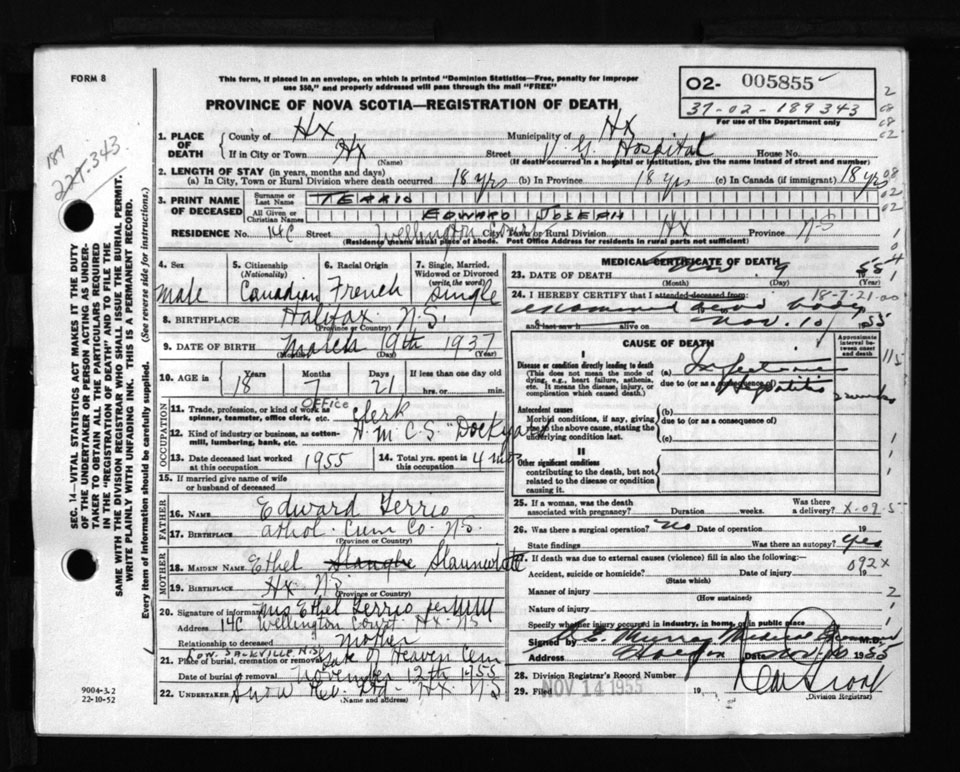 FORM 8
This form, if placed in an envelope, on which is printed "Dominion Statistics—Free, penalty for improper
use $50," and properly addressed will pass through the mail "FREE"
PROVINCE OF NOVA SCOTIA—REGISTRATION OF DEATH
02- 005855
37-02-189343
For use of the Department only
189
227.343
1. PLACE OF DEATH County of Hx Municipality of Hx
If in City or Town Hx Street V. G. Hospital House No.
(Name) (If death occurred in a hospital or institution, give the name instead of street and number)
2. LENGTH OF STAY (in years, months and days)
(a) In City, Town or Rural Division where death occurred 18 yrs (b) In Province 18 yrs (c) In Canada (if immigrant) 18 yrs
3. PRINT NAME OF DECEASED Surname or Last Name TERRIO
All Given or Christian Names EDWARD JOSEPH
RESIDENCE No. 14C Street Wellington Court City, Town or Rural Division Hx Province N-S
(Residence means usual place of abode. Post Office Address for residents in rural parts not sufficient)
4. Sex Male
5. Citizenship (Nationality) Canadian
6. Racial Origin French
7. Single, Married, Widowed or Divorced (write the word) Single
8. BIRTHPLACE Halifax N.S.
(Province or Country)
9. DATE OF BIRTH March 19th 1937
(Month) (Day) (Year)
10. AGE in Years 18 Months 7 Days 21 If less than one day old hrs. or min.
OCCUPATION
11. Trade, profession, or kind of work as spinner, teamster, office clerk, etc. OFFICE Clerk
12. Kind of industry or business, as cotton-mill, lumbering, bank, etc. H.M.C.S. Dockyard
13. Date deceased last worked at this occupation 1955
14. Total yrs. spent in this occupation 4 mos
15. If married give name of wife or husband of deceased
FATHER
16. Name Edward Terrio
17. BIRTHPLACE Athol Cum Co. N.S.
(Province or Country)
MOTHER
18. MAIDEN NAME Ethel Slaunwhite
19. BIRTHPLACE Hx N.S.
(Province or Country)
20. Signature of informant Mrs Ethel Terrio per
Address 14C Wellington Court Hx NS
Relationship to deceased Mother
LOW. SACKVILLE N.S.
21. Place of burial, cremation or removal Gate of Heaven Cem
Date of burial or removal November 12th 1955
22. UNDERTAKER Snow Ltd - Hx N S
(Name and address)
MEDICAL CERTIFICATE OF DEATH
23. DATE OF DEATH Nov. 9 55
(Month) (Day) (Year)
24. I HEREBY CERTIFY that I attended deceased from:
examined dead body
and last saw h alive on Nov. 10 1955
CAUSE OF DEATH
Approximate interval between onset and death
I
Disease or condition directly leading to death
(This does not mean the mode of dying, e.g., heart failure, asthenia, etc. It means the disease, injury, or complication which caused death.)
(a) Infectious
due to (or as a consequence of) Hepatitis 2 weeks
Antecedent causes
Morbid conditions, if any, giving rise to the above cause, stating the underlying condition last.
(b)
due to (or as a consequence of)
(c)
II
Other significant conditions
contributing to the death, but not related to the disease or condition causing it.
25. If a woman, was the death associated with pregnancy? Duration weeks. Was there a delivery?
26. Was there a surgical operation? No Date of operation 19
State findings Was there an autopsy? yes
27. If death was due to external causes (violence) fill in also the following:
Accident, suicide or homicide? Date of injury 19
(State which)
092X
Manner of injury
(How sustained)
Nature of injury
Specify whether injury occurred in industry, in home, or in public place
Signed by Murray Medical Examiner M.D.
Address Halifax Date Nov. 10 1955
28. Division Registrar's Record Number
29. Filed NOV 14 1955 19
(Division Registrar)
SEC. 14—VITAL STATISTICS ACT MAKES IT THE DUTY
OF THE UNDERTAKER OR PERSON ACTING AS UNDER-
TAKER TO OBTAIN ALL THE PARTICULARS REQUIRED
IN THE "REGISTRATION OF DEATH" AND TO FILE THE
SAME WITH THE DIVISION REGISTRAR WHO SHALL ISSUE THE BURIAL PERMIT.
WRITE PLAINLY WITH UNFADING INK. THIS IS A PERMANENT RECORD.
Every item of information should be carefully supplied. (See reverse side for instructions.)
9004-3.2
22-10-52